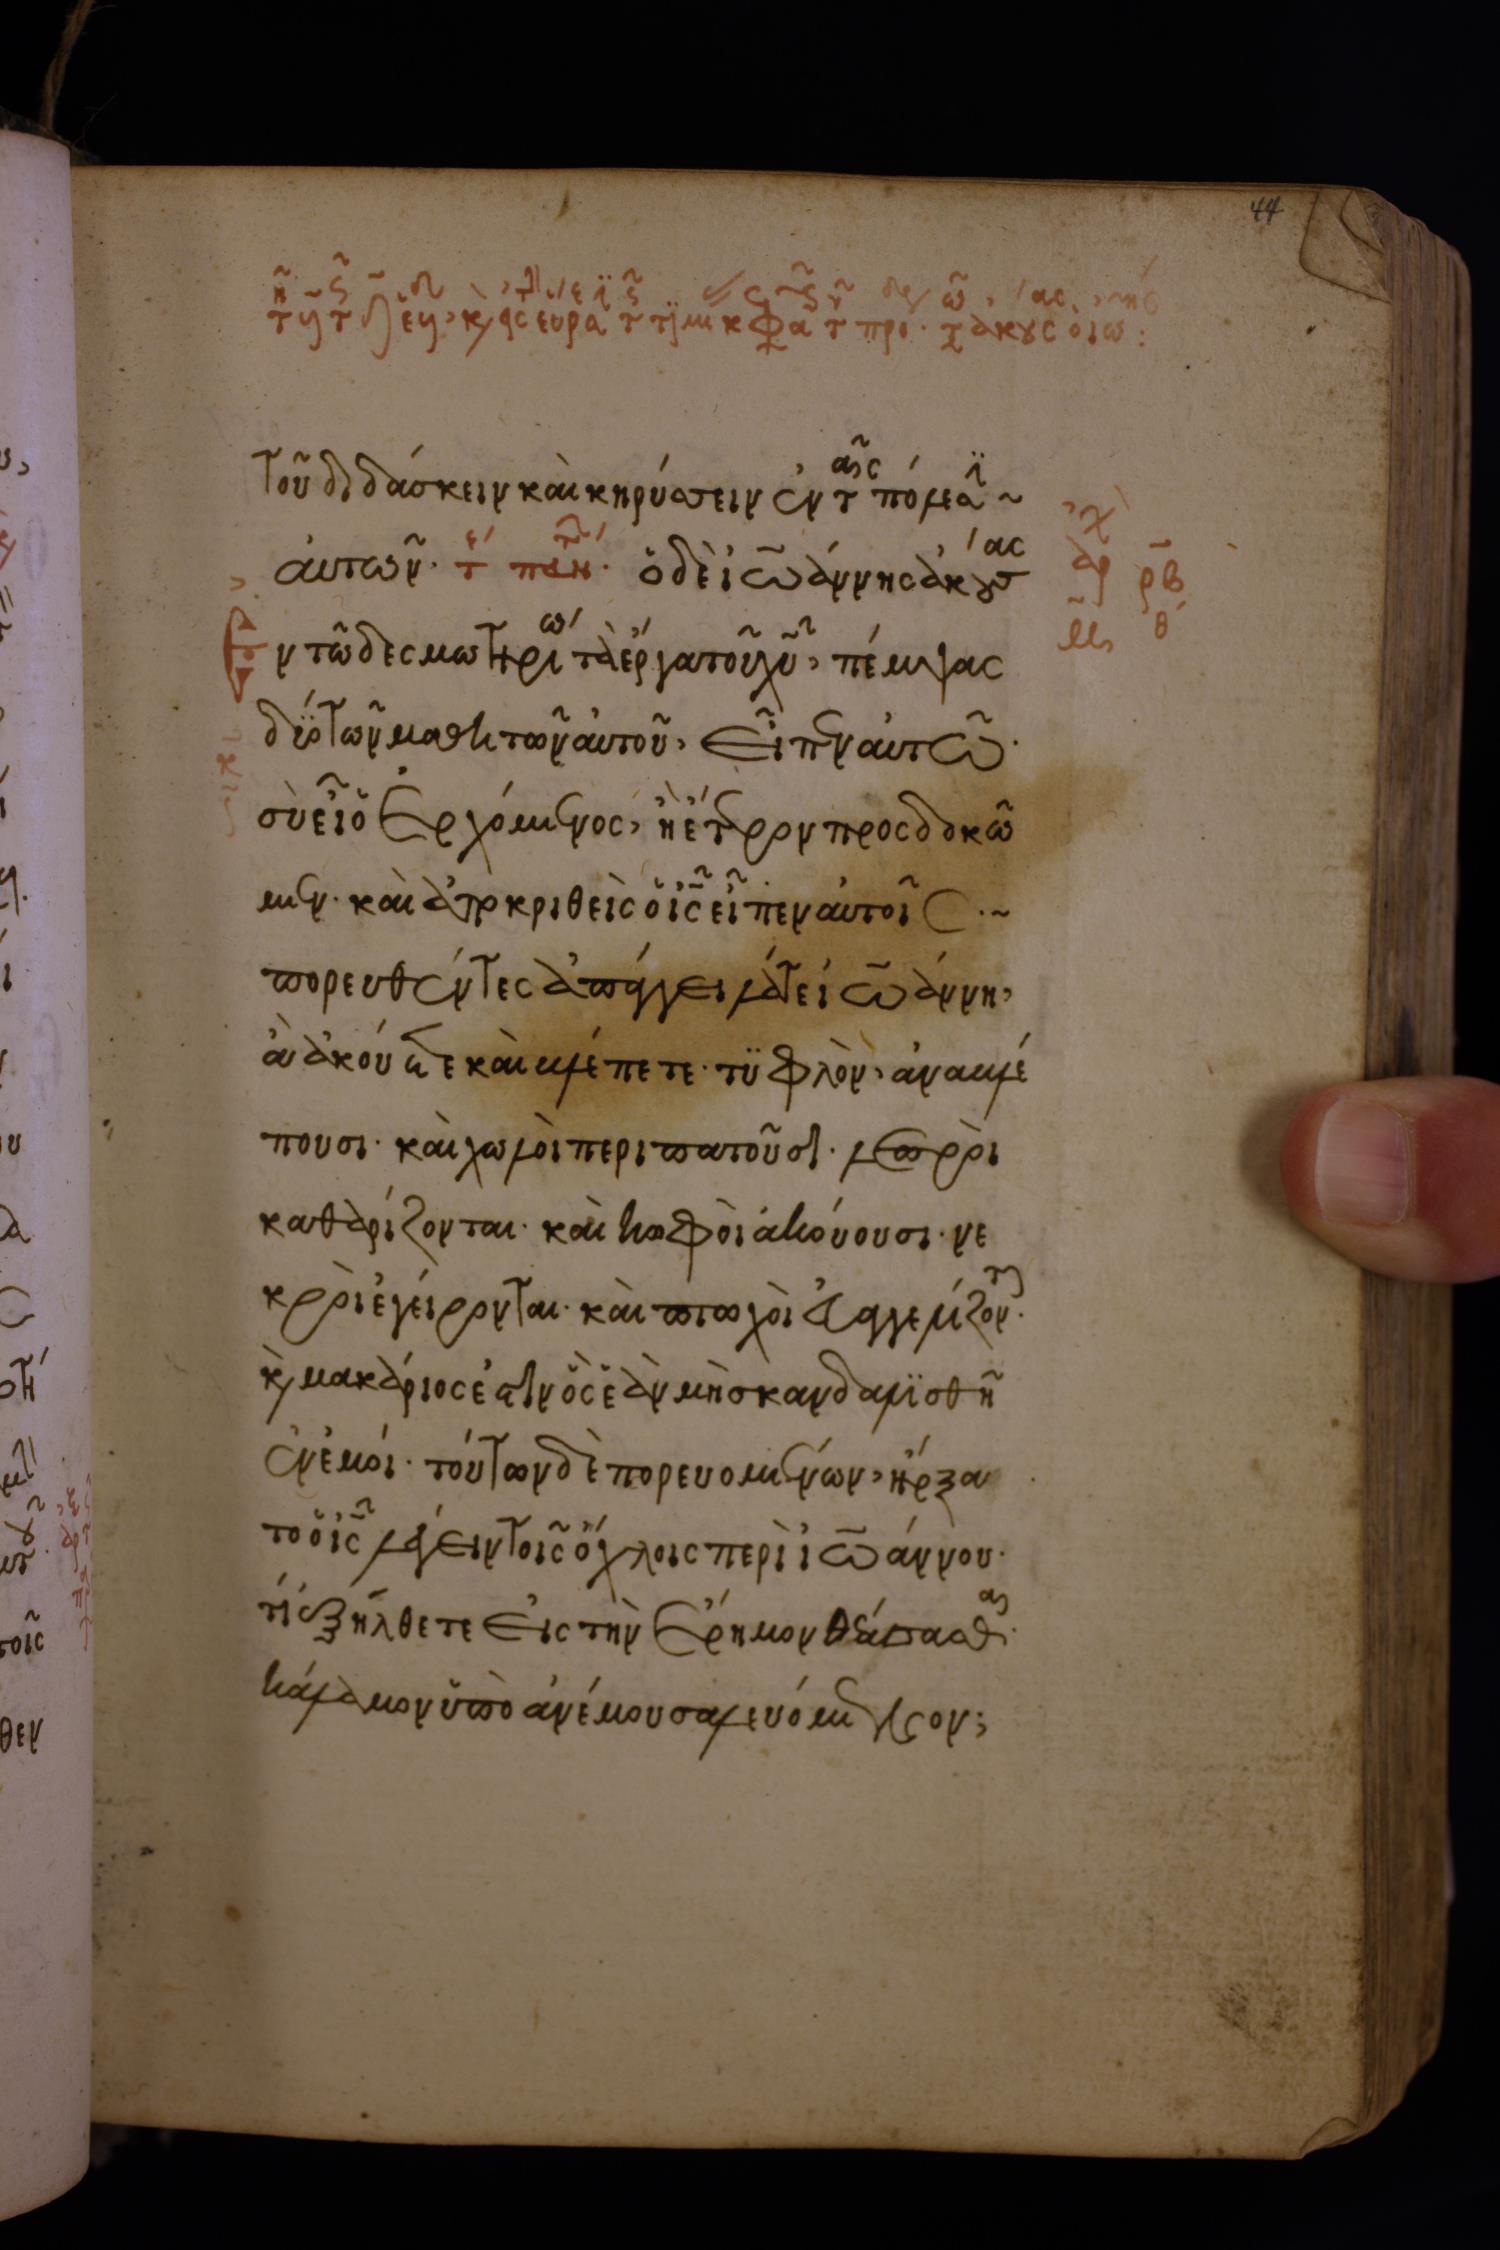 44
τοῦ διδάσκειν καὶ κηρύσσειν ἐν τ πόλεσϊ
αὐτῶν· ὁ δὲ ἰωάννης ἀκούσας
ν τῶ δεσμωτηρίω τὰ ἔργα τοῦ χυ, πέμψας
δύο τῶν μαθητῶν αὐτοῦ, εἶπεν αὐτῶ·
σὺ εἶ ὁ ἐρχόμενος, ἢ ἕτερον προσδοκῶ
μεν· καὶ ἀποκριθεὶς ὁ ις εἶπεν αὐτοῖς·
πορευθέντες ἀπαγγείλατε ἰωάννη,
ἃ ἀκούετε καὶ βλέπετε· τυφλοὶ, ἀναβλέ
πουσι· καὶ χωλοὶ περιπατοῦσι· λεπροὶ
καθαρίζονται· καὶ κωφοὶ ἀκούουσι· νε
κροὶ ἐγείρονται· καὶ πτωχοὶ εὐαγγελίζον·
κ μακάριος ἐστὶν ὃς ἐὰν μὴ σκανδαλϊσθῆ
ἐν ἐμοί· τούτων δὲ πορευομένων, ἤρξα
το ὁ ις λέγειν τοῖς ὄχλοις περὶ ἰωάννου·
τί ἐξήλθετε εἰς τὴν ἔρημον θεάσασθαι·
κάλαμον ὑπὸ ἀνέμου σαλευόμενον;